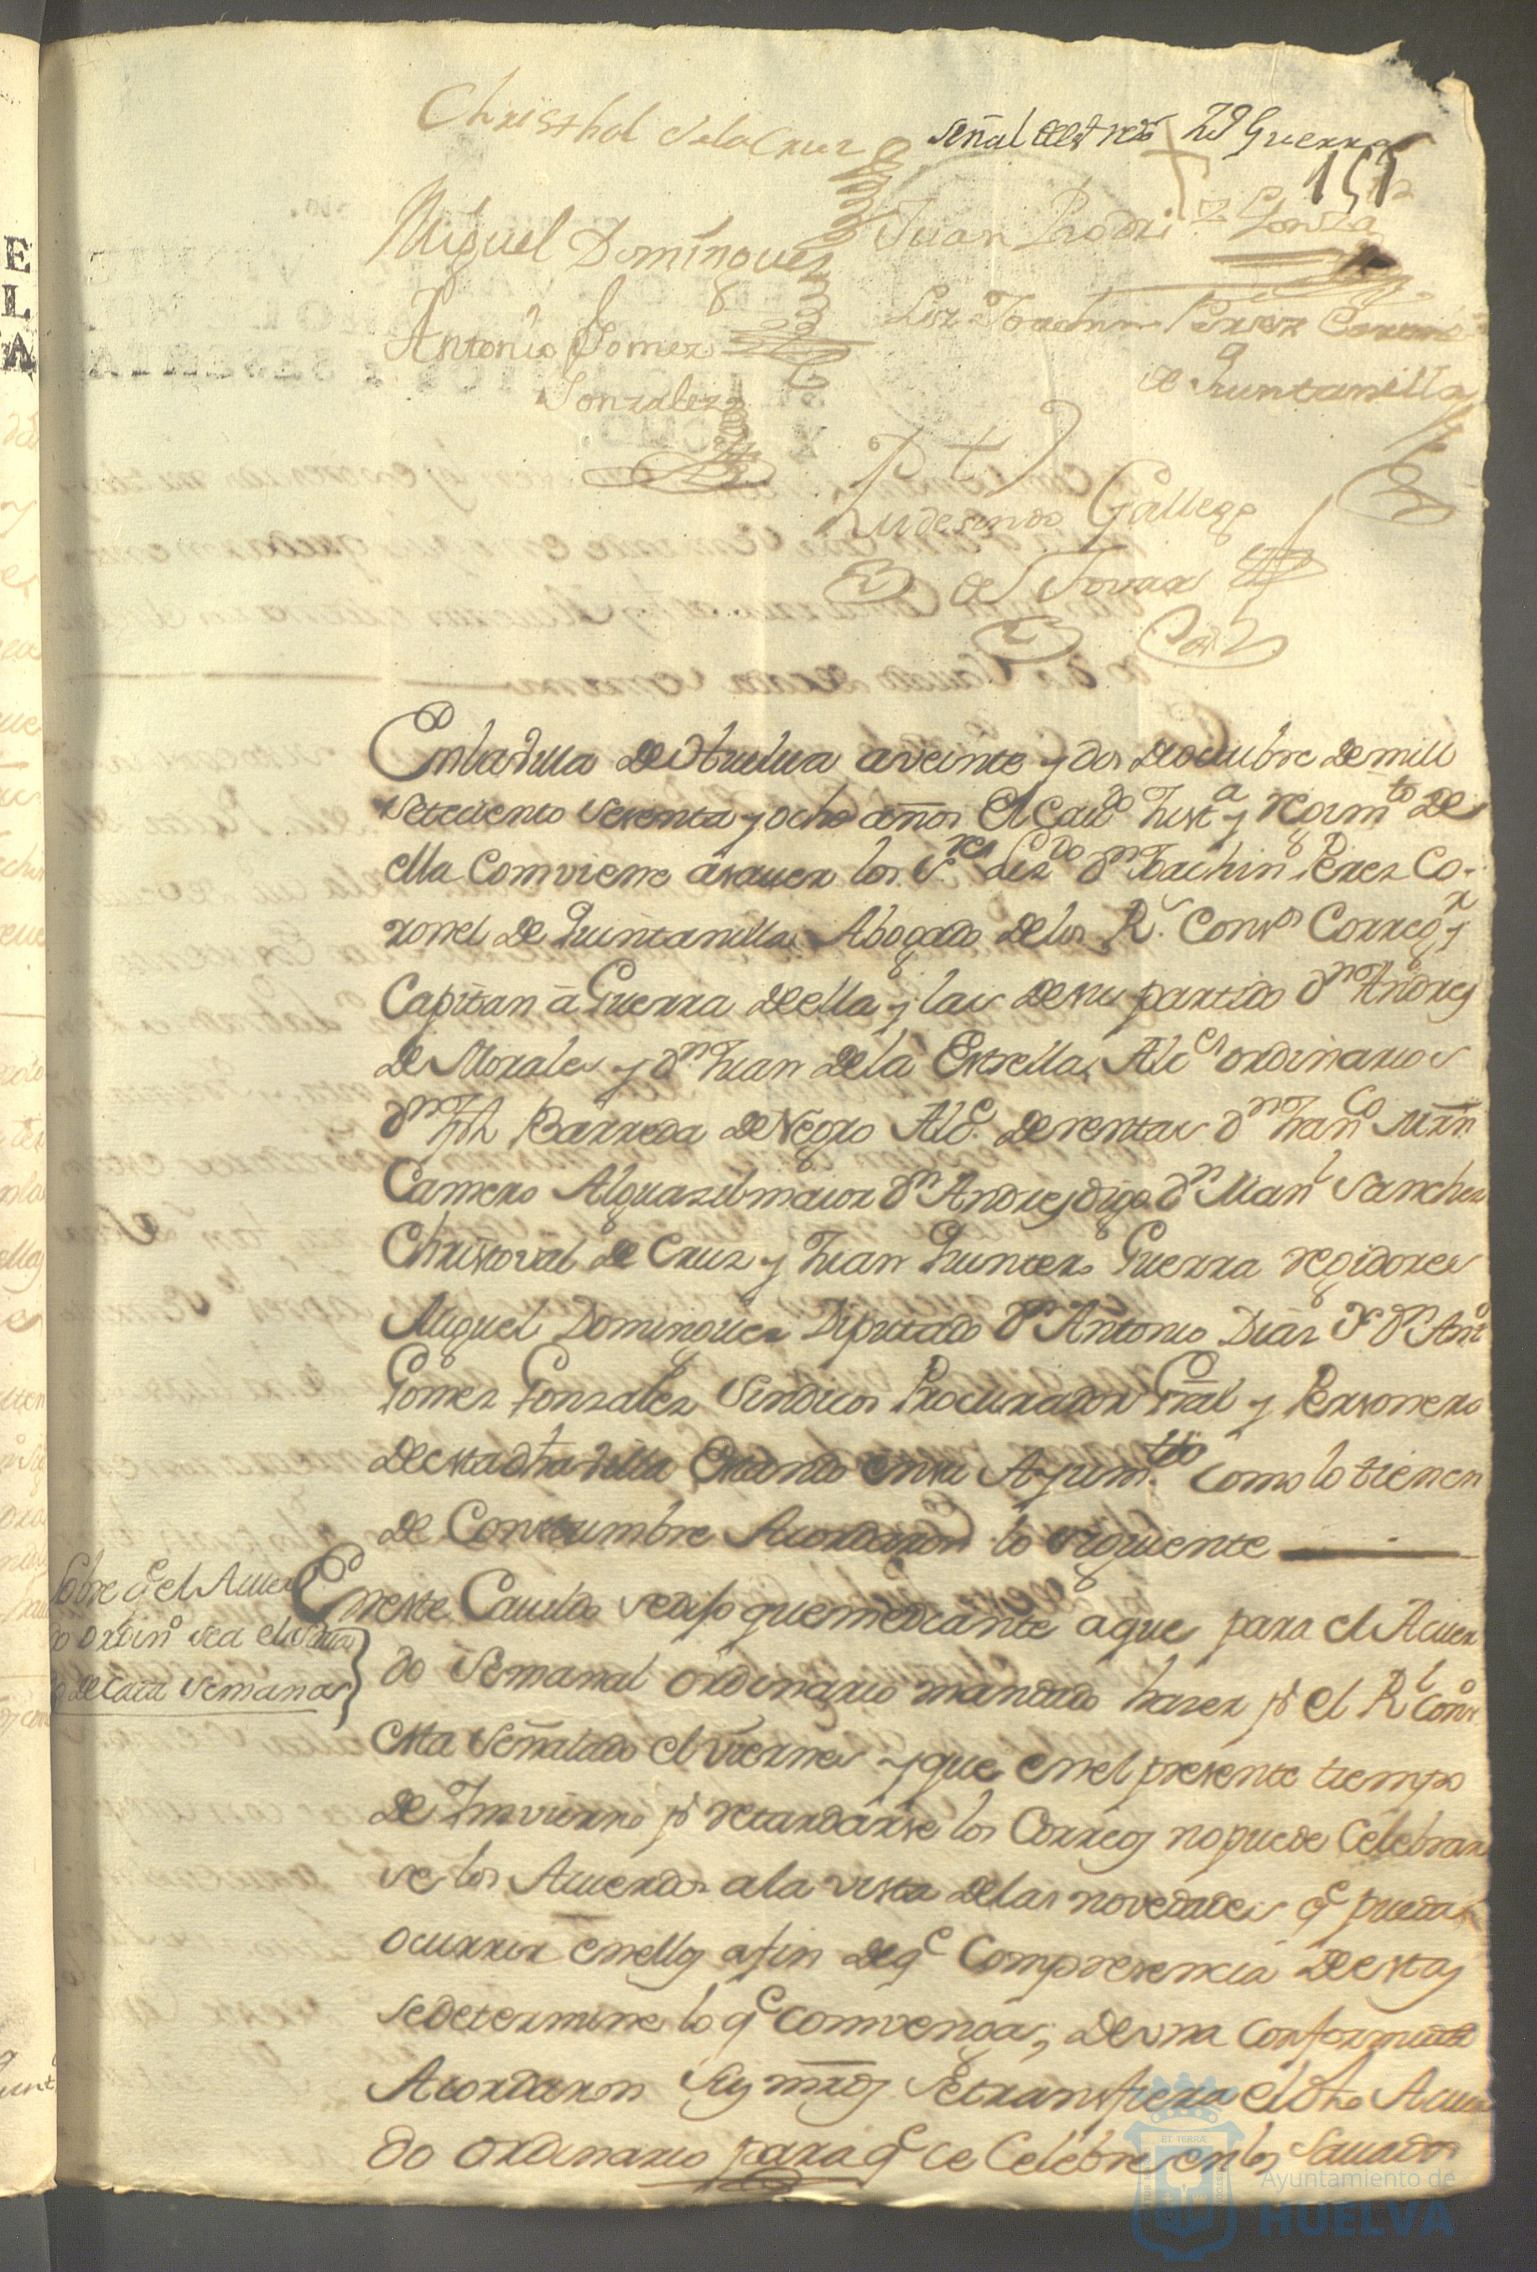 Christhol de la Cruz
señal del Rexor Guerra
151
Miguel Domínguez
Juan Rodri
Antonio Gomez
Gonzalez
Liz Joachin Perez Coronel
de Quintanilla
Rudesindo Gallego
de Tovar
En la Villa de Huelva a veinte y dos de octubre de mill
setecientos sesenta y ocho años El Cavdo Justa y regimto de
ella comviene a saver los Sres Lizdo Dn Joachin Perez Co-
ronel de Quintanilla Abogado de los Rs Consos Corregr y
Capitan â Guerra de ella y las de su partido Dn Andres
de Morales y Dn Juan de la Estrella Alces ordinarios
Dn Jph Barreda de Negro Alce de rentas Dn Franco Mrn
Camero Alguasil maior Dn Andres digo Dn Manl Sanches
Christoval de Cruz y Juan Quintero Guerra regidores
Miguel Dominguez Diputado Dn Antonio Diaz y Dn Anto
Gomez Gonzalez Sindicos Procurador Gral y Personero
de esta dha Villa Estando en su Ayuntmto como lo tienen
de Constumbre Acordaron lo siguiente
Sobre q el Acuer
do ordino sea el Sava
do de cada semana
En este Cavildo se dijo que mediante a que para el Acuer
do Semanal ordinario mandado hazer pr el Rl Conso
esta señalado el viernes y que en el presente tiempo
de Imvierno pr retardarse los Correos no puede Celebrar
se los Acuerdos a la vista de las novedades qe puedan
ocurrir en ellos a fin de qe Compresencia de estas
se determine lo qe comvenga; de una conformidad
Acordaron Sus mrds Se transfiera el dho Acuer
do ordinario para qe se Celebre en los Savados
Ayuntamiento de
HUELVA